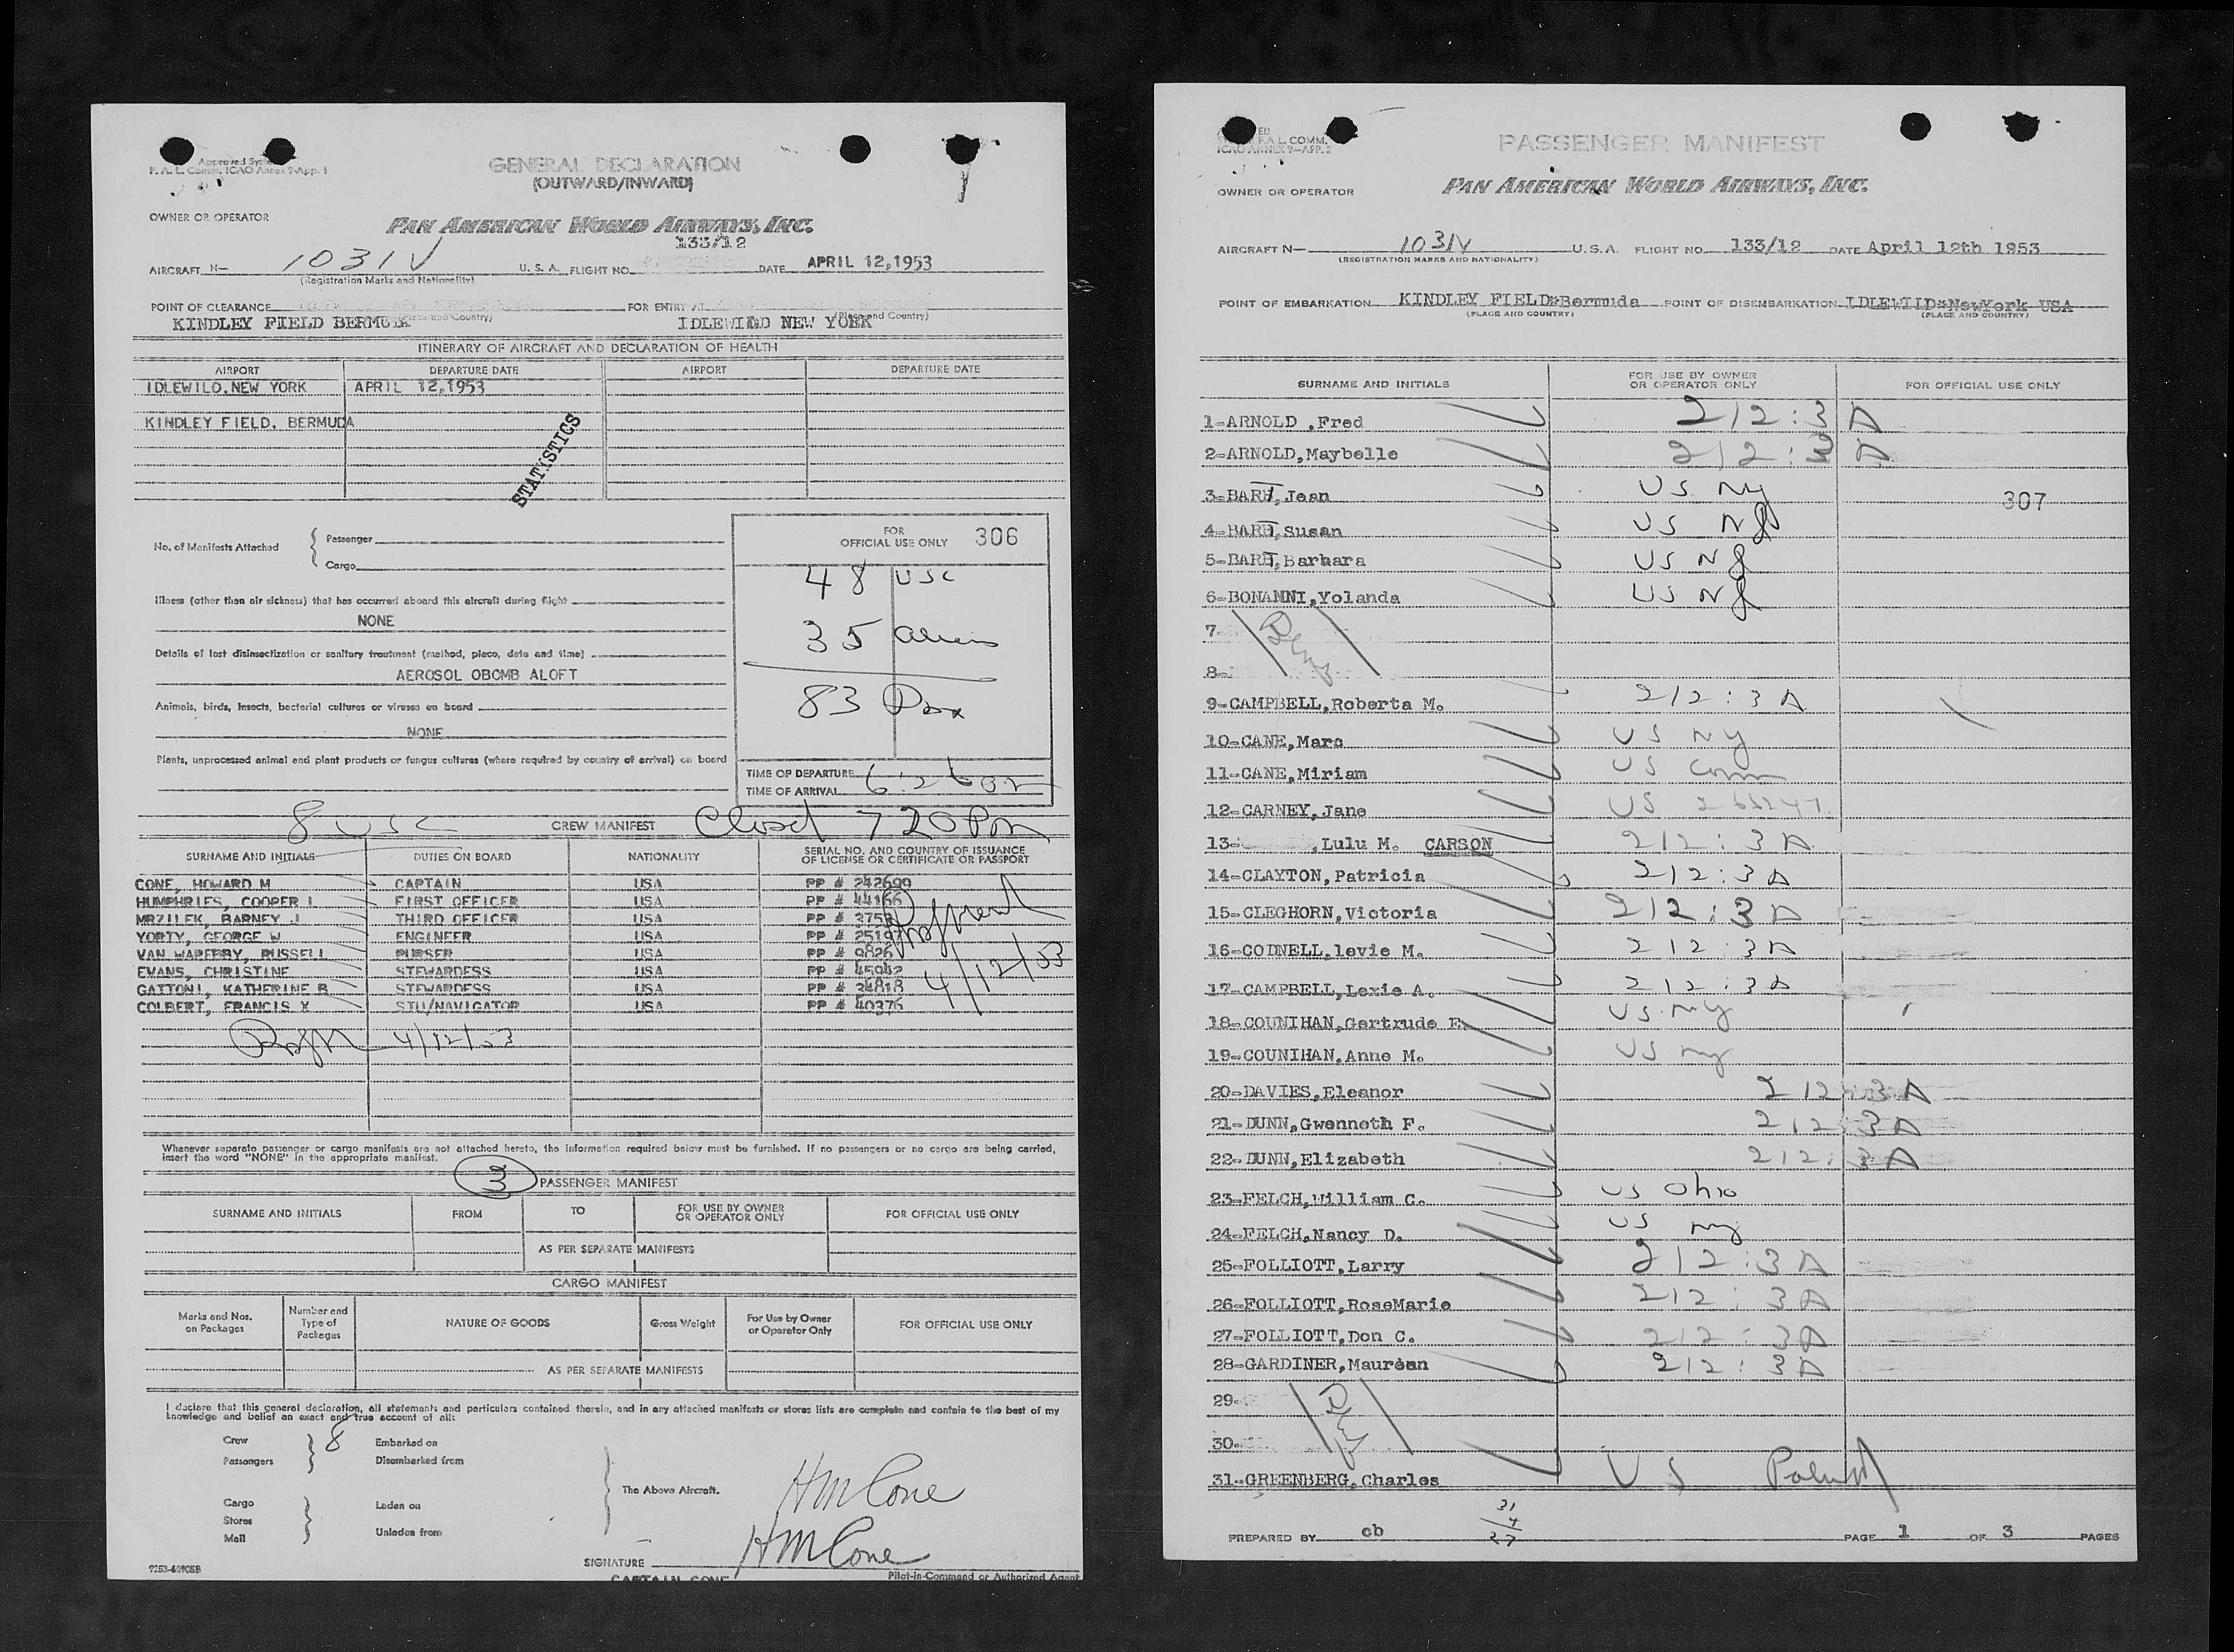 Approved System
F. A. L. Comm. ICAO Annex 9-App. 1
GENERAL DECLARATION
(OUTWARD/INWARD)
OWNER OR OPERATOR
PAN AMERICAN WORLD AIRWAYS, INC.
133/12
AIRCRAFT N- 1031V U. S. A. FLIGHT NO. DATE APRIL 12,1953
(Registration Marks and Nationality)
POINT OF CLEARANCE FOR ENTRY AT
KINDLEY FIELD BERMUDA (Place and Country) IDLEWILD NEW YORK (Place and Country)
ITINERARY OF AIRCRAFT AND DECLARATION OF HEALTH
AIRPORT DEPARTURE DATE AIRPORT DEPARTURE DATE
IDLEWILD, NEW YORK APRIL 12,1953
KINDLEY FIELD, BERMUDA
STATISTICS
No. of Manifests Attached { Passenger
Cargo
FOR
OFFICIAL USE ONLY 306
48 USC
35 Aliens
83 Pax
Illness (other than air sickness) that has occurred aboard this aircraft during flight
NONE
Details of last disinsectization or sanitary treatment (method, place, date and time)
AEROSOL OBOMB ALOFT
Animals, birds, insects, bacterial cultures or viruses on board
NONE
Plants, unprocessed animal and plant products or fungus cultures (where required by country of arrival) on board
TIME OF DEPARTURE
TIME OF ARRIVAL
8 USC CREW MANIFEST Closed 7 20 Pm
SURNAME AND INITIALS DUTIES ON BOARD NATIONALITY SERIAL NO. AND COUNTRY OF ISSUANCE
OF LICENSE OR CERTIFICATE OR PASSPORT
CONE, HOWARD M CAPTAIN USA PP # 242699
HUMPHRIES, COOPER L FIRST OFFICER USA PP # 44166
MRZILEK, BARNEY J THIRD OFFICER USA PP #
YORTY, GEORGE W ENGINEER USA PP #
VAN WARFBBY, RUSSELL PURSER USA PP # 9826
EVANS, CHRISTINE STEWARDESS USA PP # 45942
GATTONI, KATHERINE B STEWARDESS USA PP # 34818
COLBERT, FRANCIS X STU/NAVIGATOR USA PP # 40376
4/12/53
4/12/53
Whenever separate passenger or cargo manifests are not attached hereto, the information required below must be furnished. If no passengers or no cargo are being carried,
insert the word "NONE" in the appropriate manifest.
3 PASSENGER MANIFEST
SURNAME AND INITIALS FROM TO FOR USE BY OWNER
OR OPERATOR ONLY FOR OFFICIAL USE ONLY
AS PER SEPARATE MANIFESTS
CARGO MANIFEST
Marks and Nos.
on Packages Number and
Type of
Packages NATURE OF GOODS Gross Weight For Use by Owner
or Operator Only FOR OFFICIAL USE ONLY
AS PER SEPARATE MANIFESTS
I declare that this general declaration, all statements and particulars contained therein, and in any attached manifests or stores lists are complete and contain to the best of my
knowledge and belief an exact and true account of all:
Crew 8 Embarked on
Passengers Disembarked from
The Above Aircraft.
Cargo Laden on
Stores
Mail Unladen from
HM Cone
SIGNATURE HM Cone
CAPTAIN CONE Pilot-in-Command or Authorized Agent
F.A.L. COMM.
ICAO ANNEX 9-APP. 2
PASSENGER MANIFEST
OWNER OR OPERATOR PAN AMERICAN WORLD AIRWAYS, INC.
AIRCRAFT N- 1031V U.S.A. FLIGHT NO. 133/12 DATE April 12th 1953
(REGISTRATION MARKS AND NATIONALITY)
POINT OF EMBARKATION KINDLEY FIELD=Bermuda POINT OF DISEMBARKATION IDLEWILD=NewYork USA
(PLACE AND COUNTRY) (PLACE AND COUNTRY)
SURNAME AND INITIALS FOR USE BY OWNER
OR OPERATOR ONLY FOR OFFICIAL USE ONLY
1-ARNOLD ,Fred 212:3 A
2-ARNOLD,Maybelle 212:3 A
3-BART,Jean US NY
307
4-BART,Susan US NJ
5-BART,Barbara US NJ
6-BONANNI,Yolanda US NJ
7-
8-
9-CAMPBELL,Roberta M. 212:3 A
10-CANE,Marc US NY
11-CANE,Miriam US Conn
12-CARNEY,Jane US
13- ,Lulu M. CARSON 212:3 A
14-CLAYTON,Patricia 212:3 A
15-CLEGHORN,Victoria 212:3 A
16-CODNELL,levie M. 212:3A
17-CAMPBELL,Lexie A. 212:3A
18-COUNIHAN,Gertrude E. US NY
19-COUNIHAN,Anne M. US NY
20-DAVIES,Eleanor 212:3 A
21-DUNN,Gwenneth F. 212:3 A
22-DUNN,Elizabeth 212:3 A
23-FELCH,William C. US Ohio
24-FELCH,Nancy D. US NY
25-FOLLIOTT,Larry 212:3 A
26-FOLLIOTT,RoseMarie 212:3A
27-FOLLIOTT,Don C. 212:3A
28-GARDINER,Maureen 212:3A
29-
30-
31-GREENBERG,Charles US
31
4
27
PREPARED BY cb PAGE 1 OF 3 PAGES